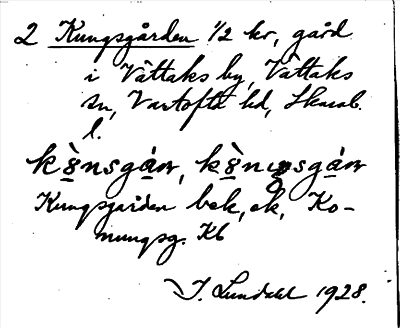 2 Kungsgården 1/2 kr, gård
i Våttaks by, Våttaks
sn, Vartofta hd, Skarab.
l.
Kungsgården bek, ek, Ko-
nungsg. Kb
I. Lundahl 1928.